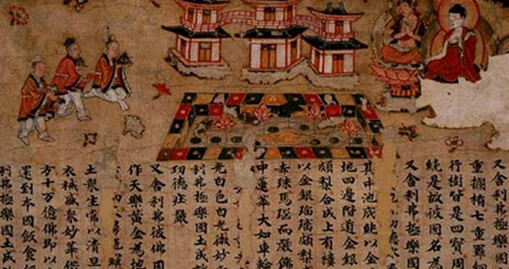 又舍利弗極樂
重欄楯七重羅
行樹皆是四寶周
繞是故彼國名
又舍利弗極樂國
其中池底純以金
地四邊階道金銀
頗梨合成上有樓
以金銀瑠璃頗梨
赤珠馬瑙而嚴飾
中蓮華大如車輪
光白色白光微妙
利弗極樂國土成
功德莊嚴
又舍利弗彼佛國
作天樂黃金為地
土眾生常以清旦
衣裓盛眾妙華
方十万億佛即以
還到本國飯食
利弗極樂國土成